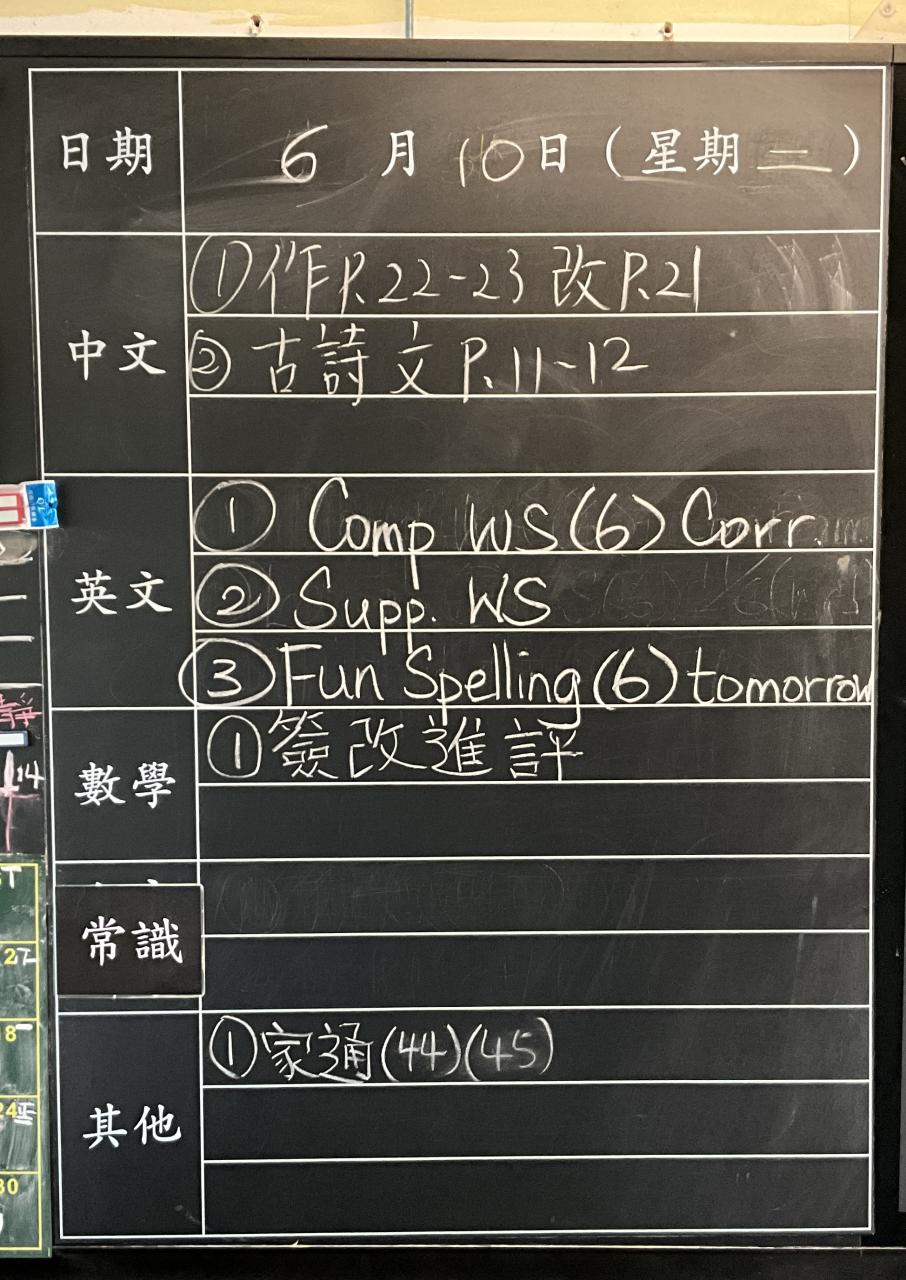 日期 6月10日(星期二)
中文
①作P.22-23 改P.21
②古詩文P.11-12
英文
① Comp WS(6) Corr.
② Supp. WS
③ Fun Spelling(6) tomorrow
數學
①簽改進評
常識
其他
①家通(44)(45)
14